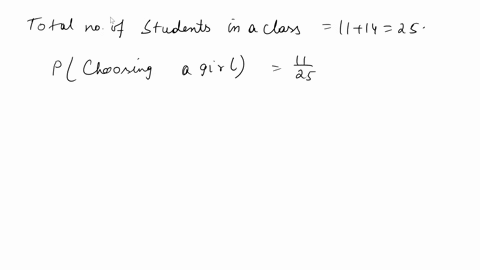 Total no. of Students in a class = 11+14 = 25.
P( Choosing a girl) = 11/25